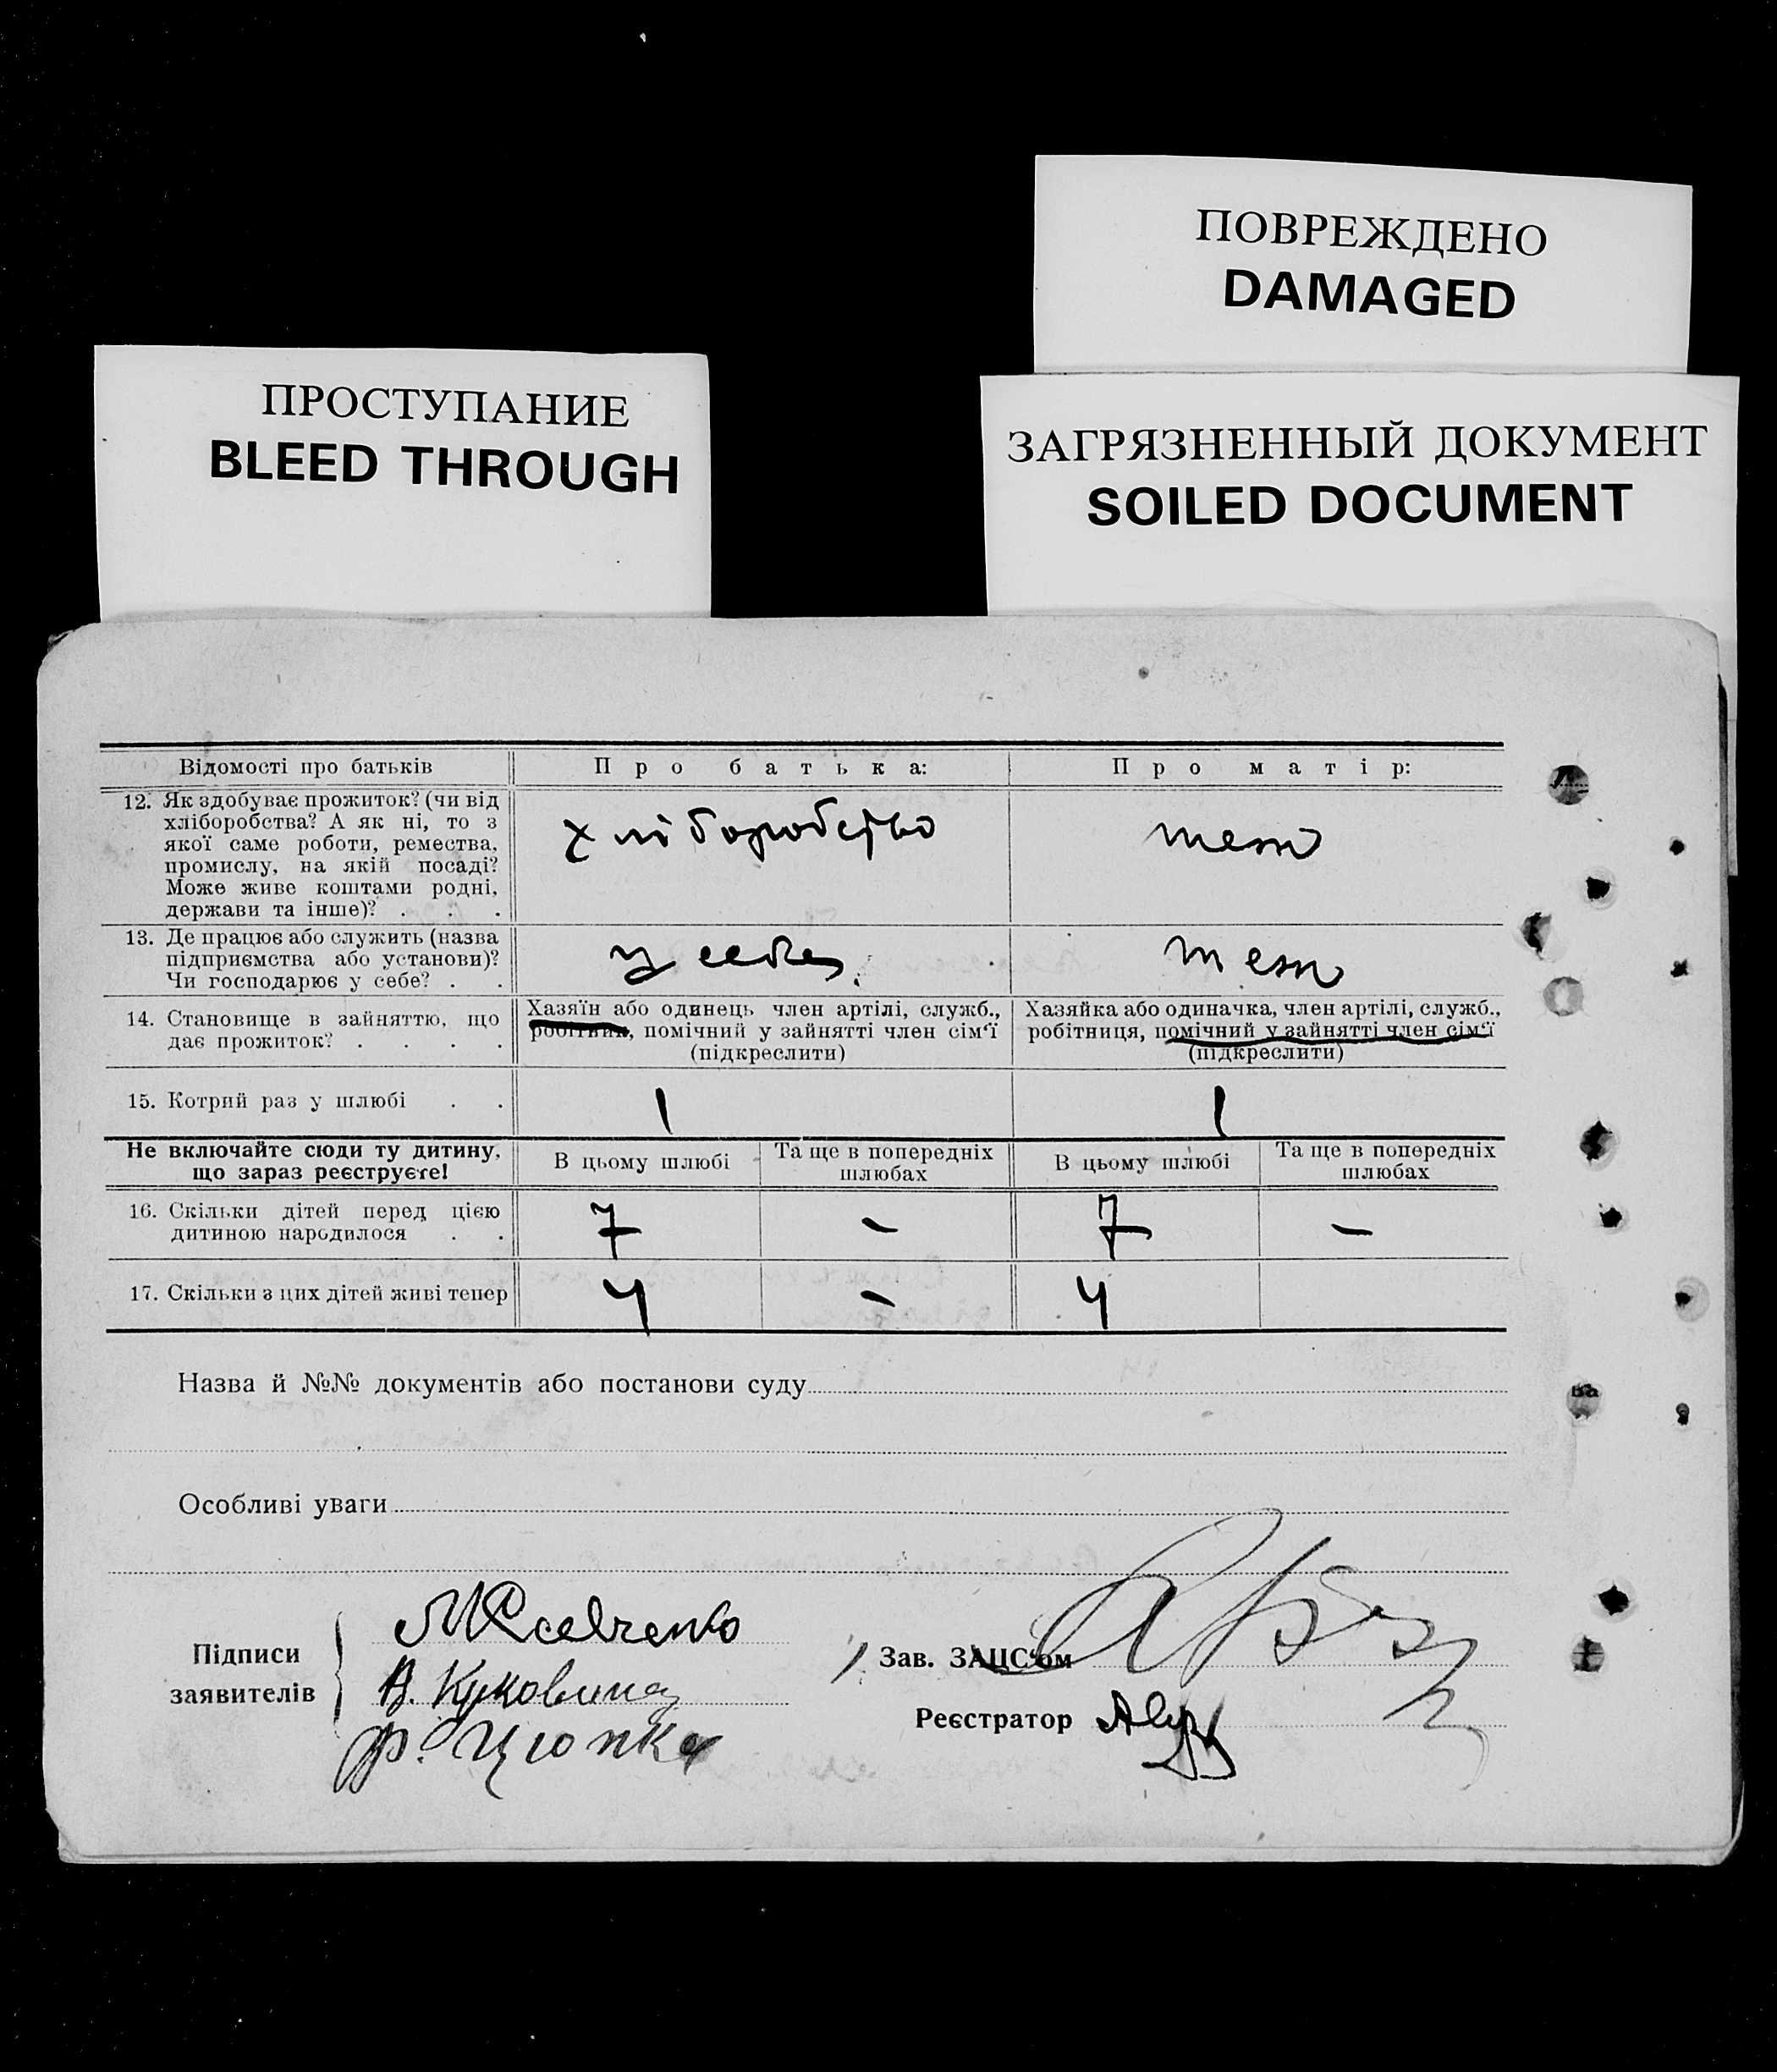 ПОВРЕЖДЕНО
DAMAGED
ПРОСТУПАНИЕ
BLEED THROUGH
ЗАГРЯЗНЕННЫЙ ДОКУМЕНТ
SOILED DOCUMENT
Відомості про батьків
Про батька:
Про матір:
12. Як здобуває прожиток? (чи від
хліборобства? А як ні, то з
якої саме роботи, ремества,
промислу, на якій посаді?
Може живе коштами родні,
держави та інше)? . . .
хліборобство
теж
13. Де працює або служить (назва
підприємства або установи)?
Чи господарює у себе? . .
у себе
теж
14. Становище в зайняттю, що
дає прожиток? . . . .
Хазяїн або одинець член артілі, служб.,
робітник, помічний у зайнятті член сім'ї
(підкреслити)
Хазяйка або одиначка, член артілі, служб.,
робітниця, помічний у зайнятті член сім'ї
(підкреслити)
15. Котрий раз у шлюбі . .
1
1
Не включайте сюди ту дитину,
що зараз реєструєте!
В цьому шлюбі
Та ще в попередніх
шлюбах
В цьому шлюбі
Та ще в попередніх
шлюбах
16. Скільки дітей перед цією
дитиною народилося . .
7
–
7
–
17. Скільки з цих дітей живі тепер
4
–
4
Назва й №№ документів або постанови суду
Особливі уваги
Підписи
заявителів
В. Куковина
Ф. Цюпка
Зав. ЗАЦС'ом
Реєстратор